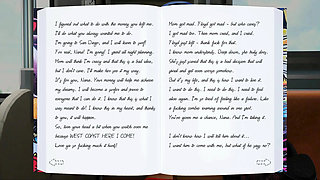 I figured out what to do with the money you left me.
I'll do what you always wanted me to do.
I'm going to San Diego, and I will learn to surf!
I'm mad, Nana! I'm going! I spent all night planning.
Mom will think I'm crazy and that this is a bad idea,
but I don't care. I'll make her see it my way.
It's for you, Nana. Your money will help me achieve
my dream, I will become a surfer and prove to
everyone that I can do it. I know that this is what I
was meant to do! I know this in my heart, and thanks
to you, it will happen.
So, turn your head a bit when you watch over me
because WEST COAST HERE I COME!
Love you so fucking much & fuck!
Mom got mad. I kept yelled - but who cares?
I got mad too. Then mom cried, and I cried.
I kept just left - think back for that.
I know mom understands. Deep down, she truly does.
She's just scared that this is a bad decision that will
grand and get even worse somehow.
But it's my life, and this is how I want to live it.
I want to do this. I need to do this. I need to feel
alive again. I'm so tired of feeling like a failure. Like
a fucking zombie moving around in one spot.
You've given me a chance, Nana. And I'm taking it.
I don't know how I will tell him about it...
I want him to come with me, but what if he says no?